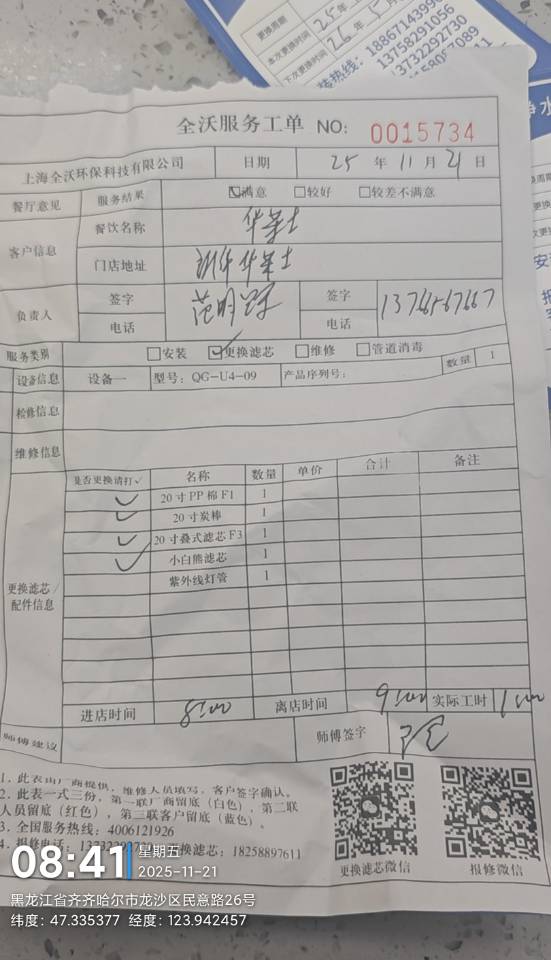 更换周期
本次更换时间 25年
下次更换时间 26年5月
装热线：1886714399
13758291056
13732292730
全沃服务工单 NO： 0015734
上海全沃环保科技有限公司 日期 25 年 11 月 21 日
餐厅意见 服务结果 ☑满意 □较好 □较差不满意
客户信息 餐饮名称 华莱士
门店地址 华莱士
负责人 签字 签字
电话 电话
服务类别 □安装 ☑更换滤芯 □维修 □管道消毒
设备信息 设备一 型号：QG-U4-09 产品序列号： 数量 1
检修信息
维修信息
更换滤芯/配件信息
是否更换请打√ 名称 数量 单价 合计 备注
√ 20寸PP棉F1 1
√ 20寸炭棒 1
√ 20寸叠式滤芯F3 1
√ 小白熊滤芯 1
紫外线灯管 1
进店时间 8:00 离店时间 9:00 实际工时 1
师傅建议 师傅签字
1、此表由厂商提供，维修人员填写，客户签字确认。
2、此表一式三份，第一联厂商留底（白色），第二联
人员留底（红色），第三联客户留底（蓝色）。
3、全国服务热线：4006121926
4、报修电话： 更换滤芯：18258897611
更换滤芯微信 报修微信
08:41 星期五
2025-11-21
黑龙江省齐齐哈尔市龙沙区民意路26号
纬度：47.335377 经度：123.942457